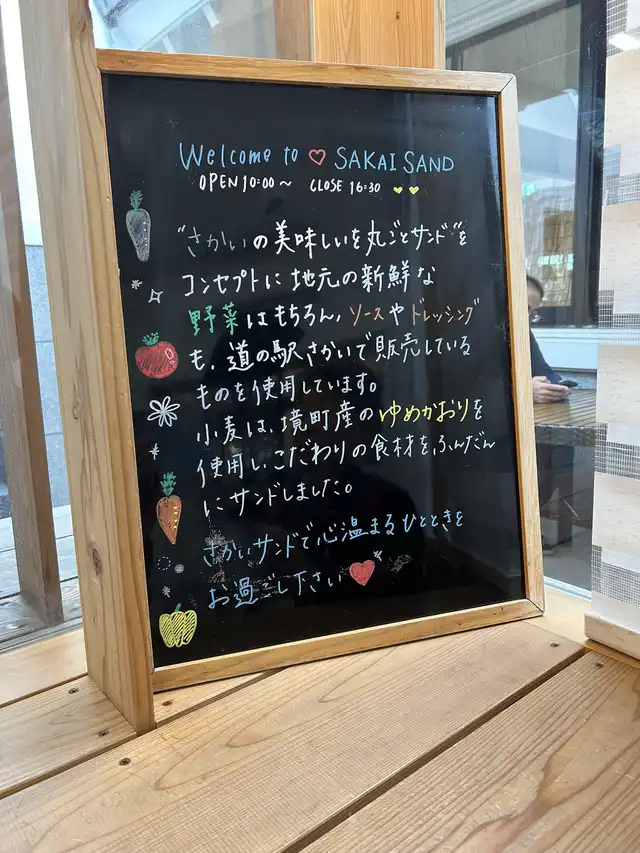 Welcome to ♡ SAKAI SAND
OPEN 10:00〜 CLOSE 16:30
"さかいの美味しいを丸ごとサンド"を
コンセプトに地元の新鮮な
野菜はもちろん、ソースやドレッシング
も、道の駅さかいで販売している
ものを使用しています。
小麦は、境町産のゆめかおりを
使用し、こだわりの食材を、ふんだん
にサンドしました。
さかいサンドで心温まるひとときを
お過ごし下さい